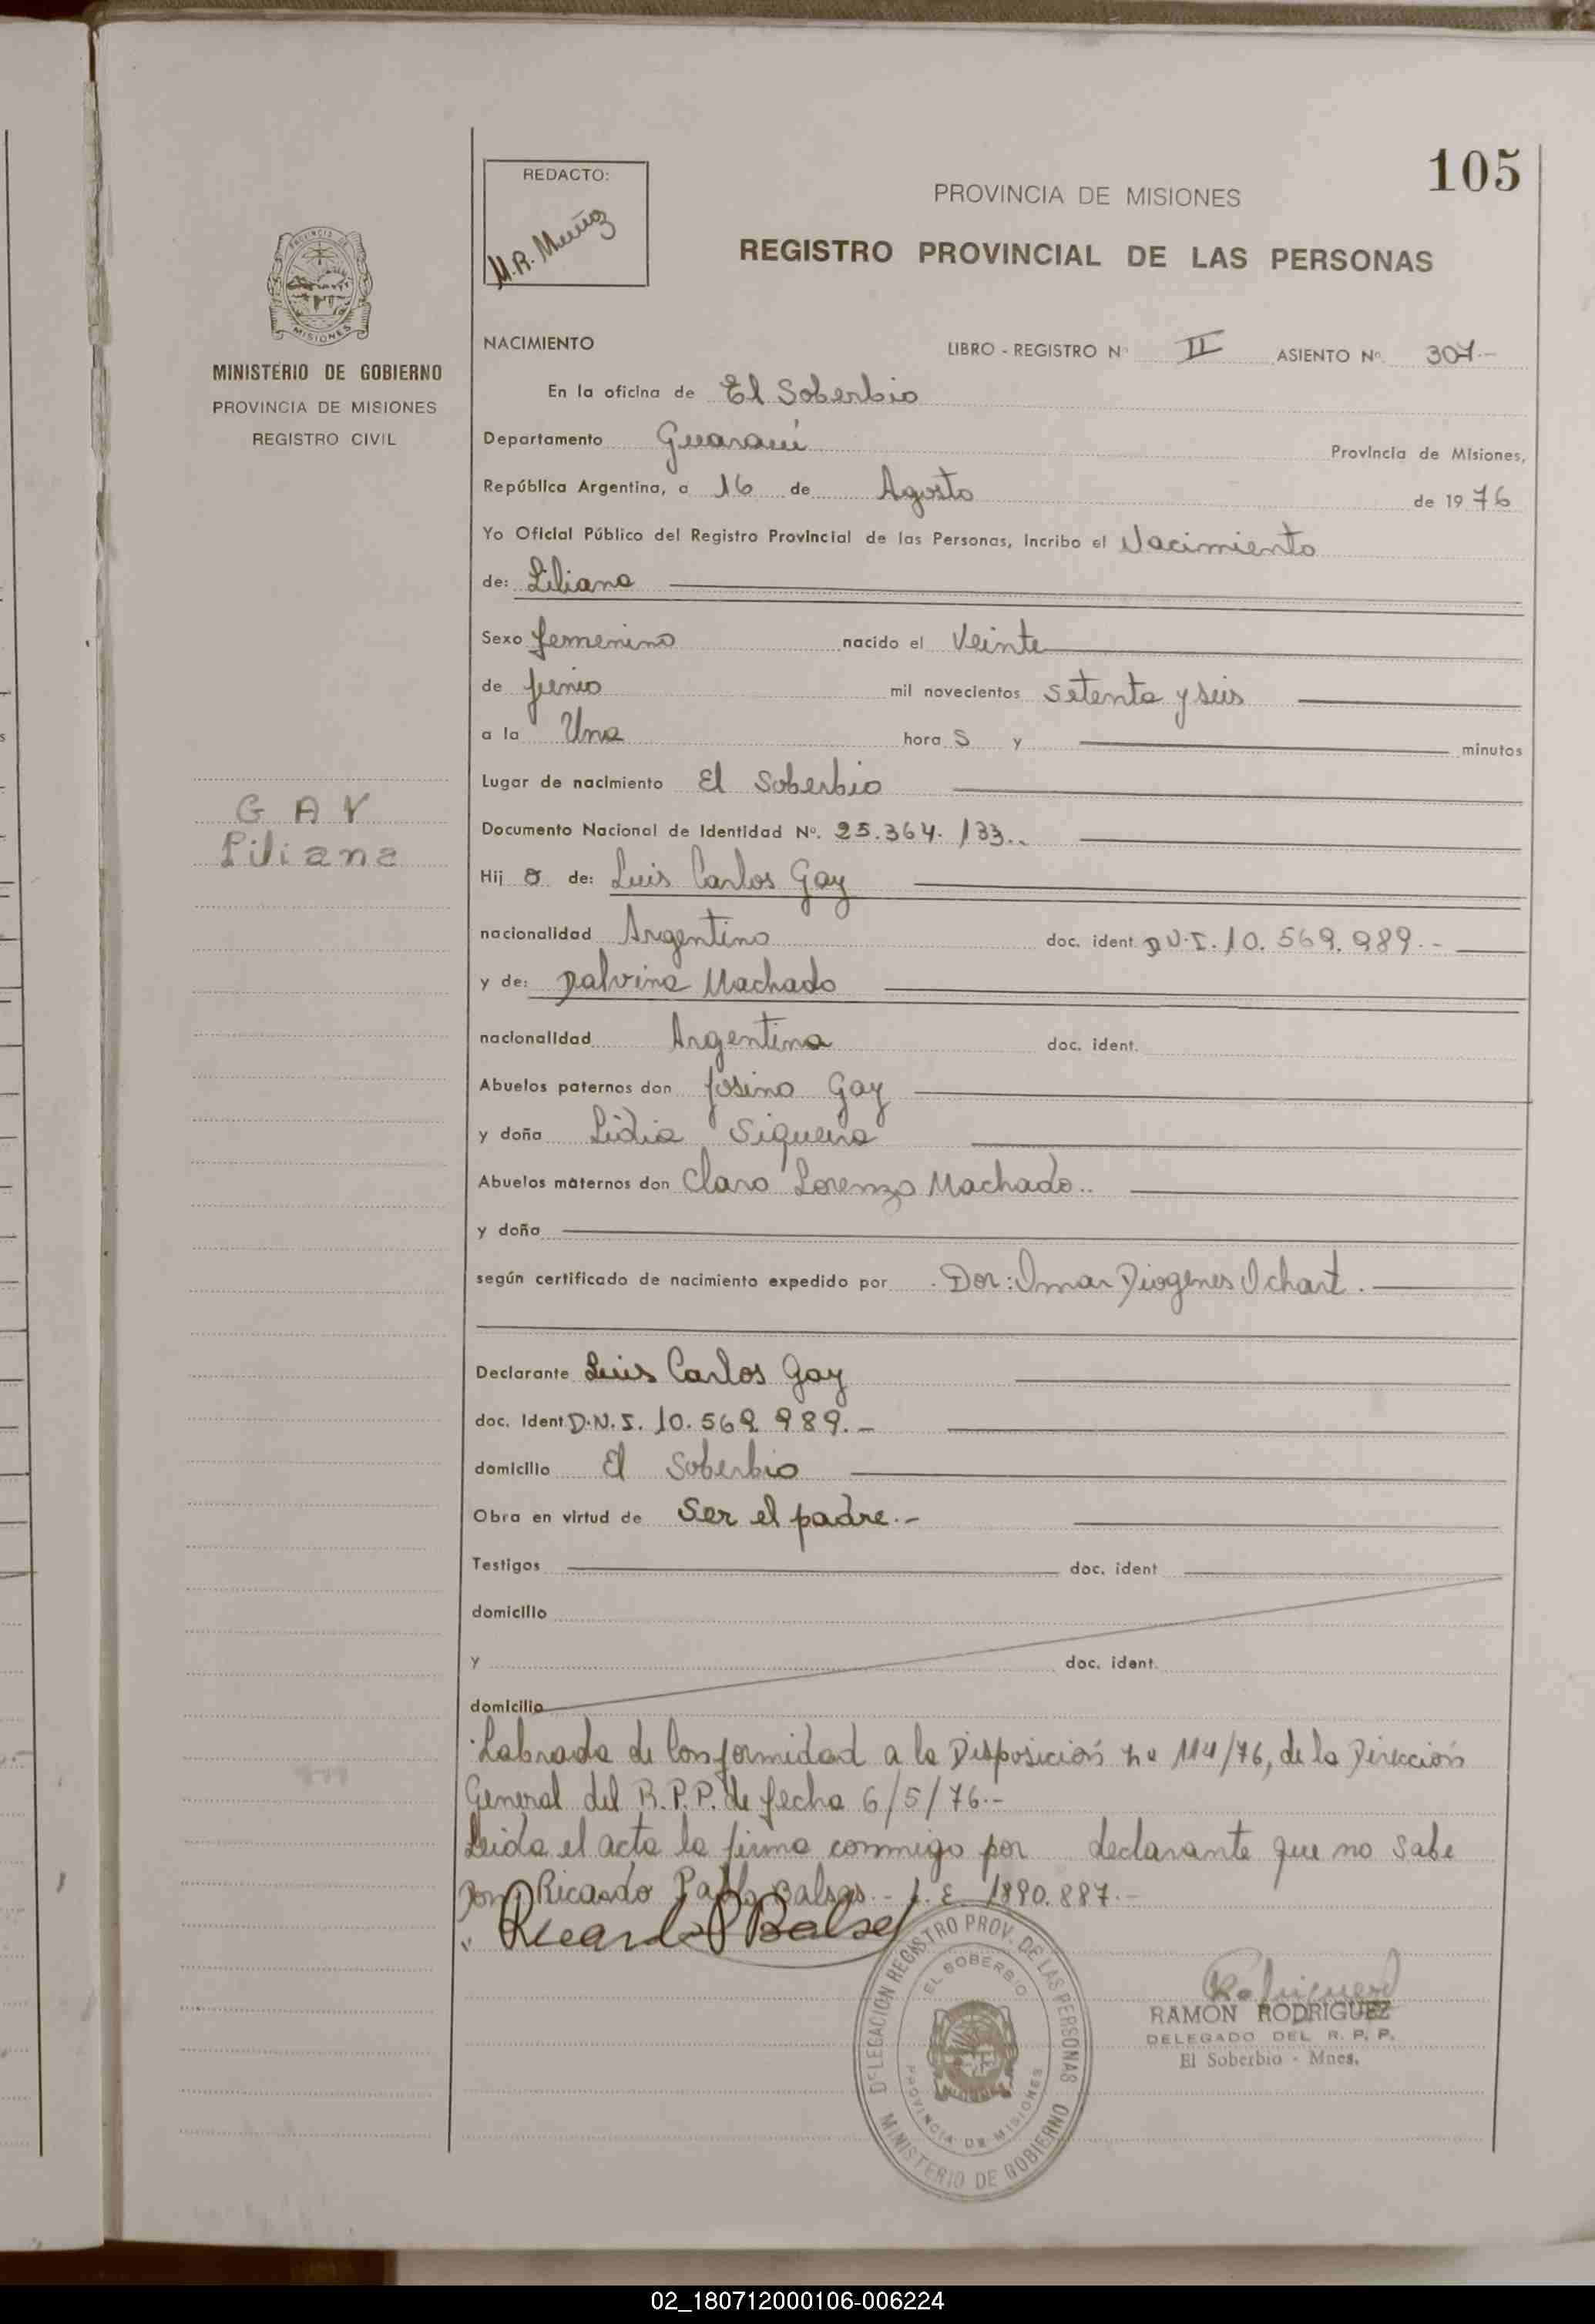 105
REDACTO:
M.R. Muñoz
PROVINCIA DE MISIONES
REGISTRO PROVINCIAL DE LAS PERSONAS
PROVINCIA DE
MISIONES
MINISTERIO DE GOBIERNO
PROVINCIA DE MISIONES
REGISTRO CIVIL
GAY
Liliana
NACIMIENTO LIBRO - REGISTRO Nº II ASIENTO Nº. 307.-
En la oficina de El Soberbio
Departamento Guaraní Provincia de Misiones,
República Argentina, a 16 de Agosto de 1976
Yo Oficial Público del Registro Provincial de las Personas, Incribo el Nacimiento
de: Liliana
Sexo femenino nacido el Veinte
de junio mil novecientos setenta y seis
a la Una hora s y minutos
Lugar de nacimiento El Soberbio
Documento Nacional de Identidad Nº. 25.364.133..
Hij a de: Luis Carlos Gay
nacionalidad Argentino doc. ident D.N.I. 10.569.989.-
y de: Dalvina Machado
nacionalidad Argentina doc. ident.
Abuelos paternos don Josino Gay
y doña Lidia Siqueira
Abuelos maternos don Claro Lorenzo Machado..
y doña
según certificado de nacimiento expedido por Dor: Omar Diogenes Ochart.
Declarante Luis Carlos Gay
doc. Ident D.N.I. 10.569.989.-
domicilio El Soberbio
Obra en virtud de Ser el padre.-
Testigos doc. ident
domicilio
y doc. ident.
domicilio
Labrada de Conformidad a la Disposición nº 114/76, de la Dirección
General del R.P.P. de fecha 6/5/76.-
Leida el acta la firma conmigo por declarante que no sabe
Don: Ricardo Pablo Balsas.- L.E. 1890.887.-
Ricardo P Balsa
DELEGACION REGISTRO PROV. DE LAS PERSONAS
EL SOBERBIO
PROVINCIA DE MISIONES
MINISTERIO DE GOBIERNO
Rodriguez
RAMON RODRIGUEZ
DELEGADO DEL R. P. P.
El Soberbio - Mnes.
02_180712000106-006224